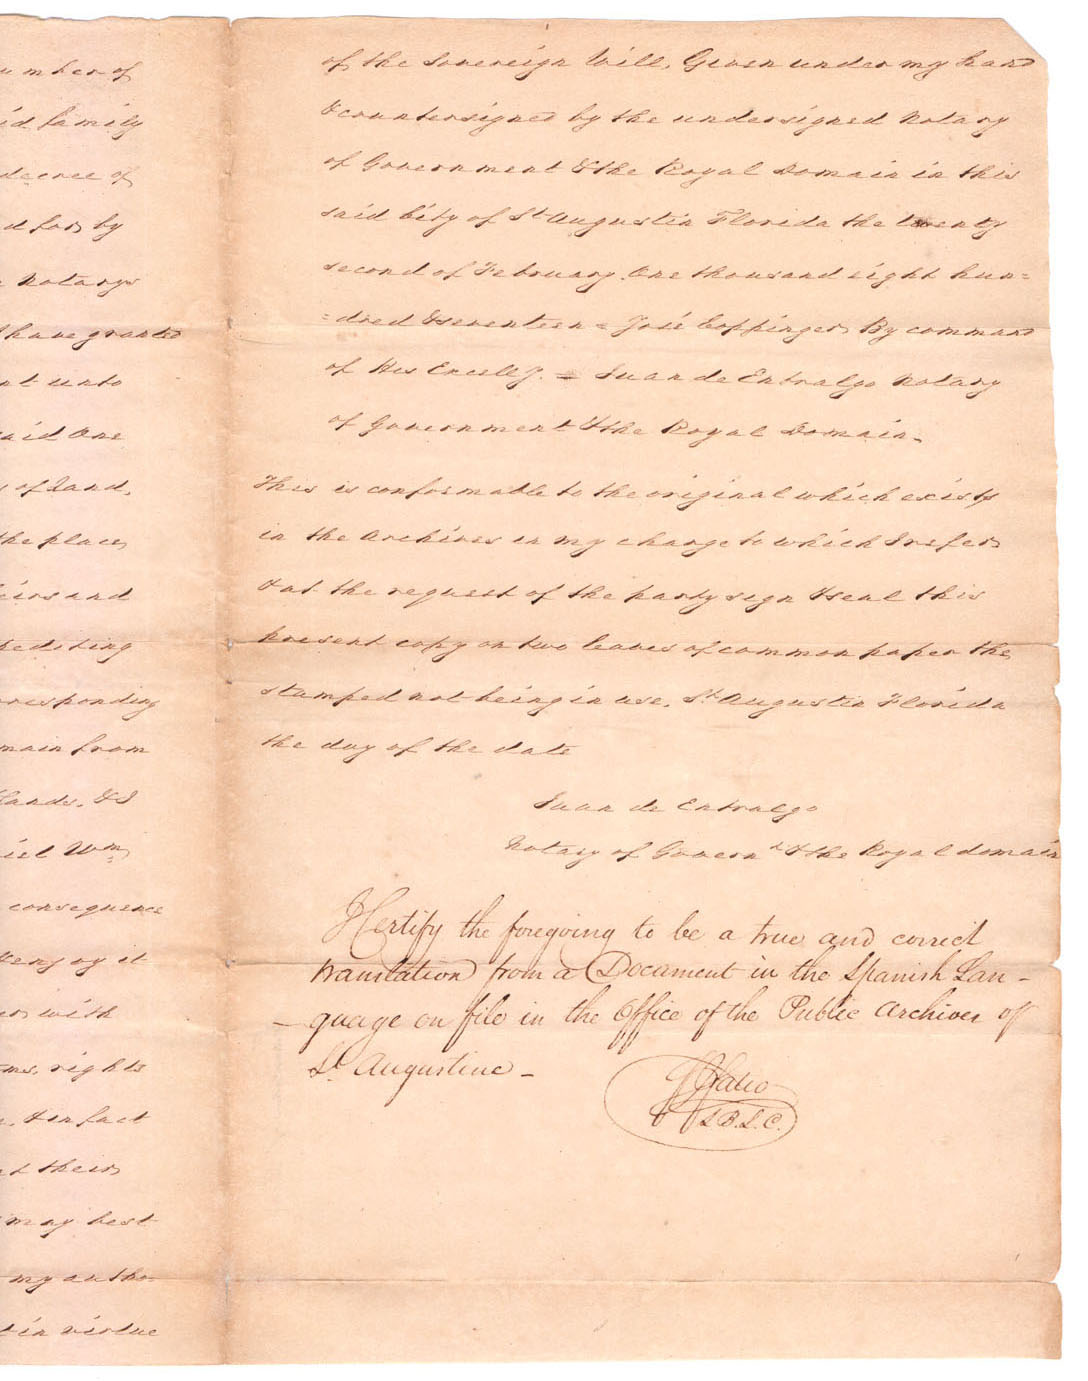 umber of
id family
decree of
d for by
Notarys
have granted
nt unto
aid One
s of Land,
the place,
eirs and
pediting
orresponding
main from
Lands, & I
iel Wm,
consequence
ver with
ms, rights
, & in fact
their
may best
my autho-
t in virtue
of the Sovereign Will, Given under my hand
& countersigned by the undersigned Notary
of Government & the Royal Domain in this
said City of St. Augustin Florida the twenty
second of February, One thousand eight hun=
=dred & seventeen = José Coppinger, By command
of His Excelly. = Juan de Entralgo Notary
of Government & the Royal Domain.
This is conformable to the original which exists
in the Archives in my charge to which I refer
& at the request of the party sign & seal this
present copy on two leaves of common paper the
stamped not being in use, St. Augustin Florida
the day of the date
Juan de Entralgo
Notary of Governt & the Royal domain
I Certify the foregoing to be a true and correct
translation from a Document in the Spanish Lan-
-guage on file in the Office of the Public Archives of
St. Augustine -
S.B.L.C.